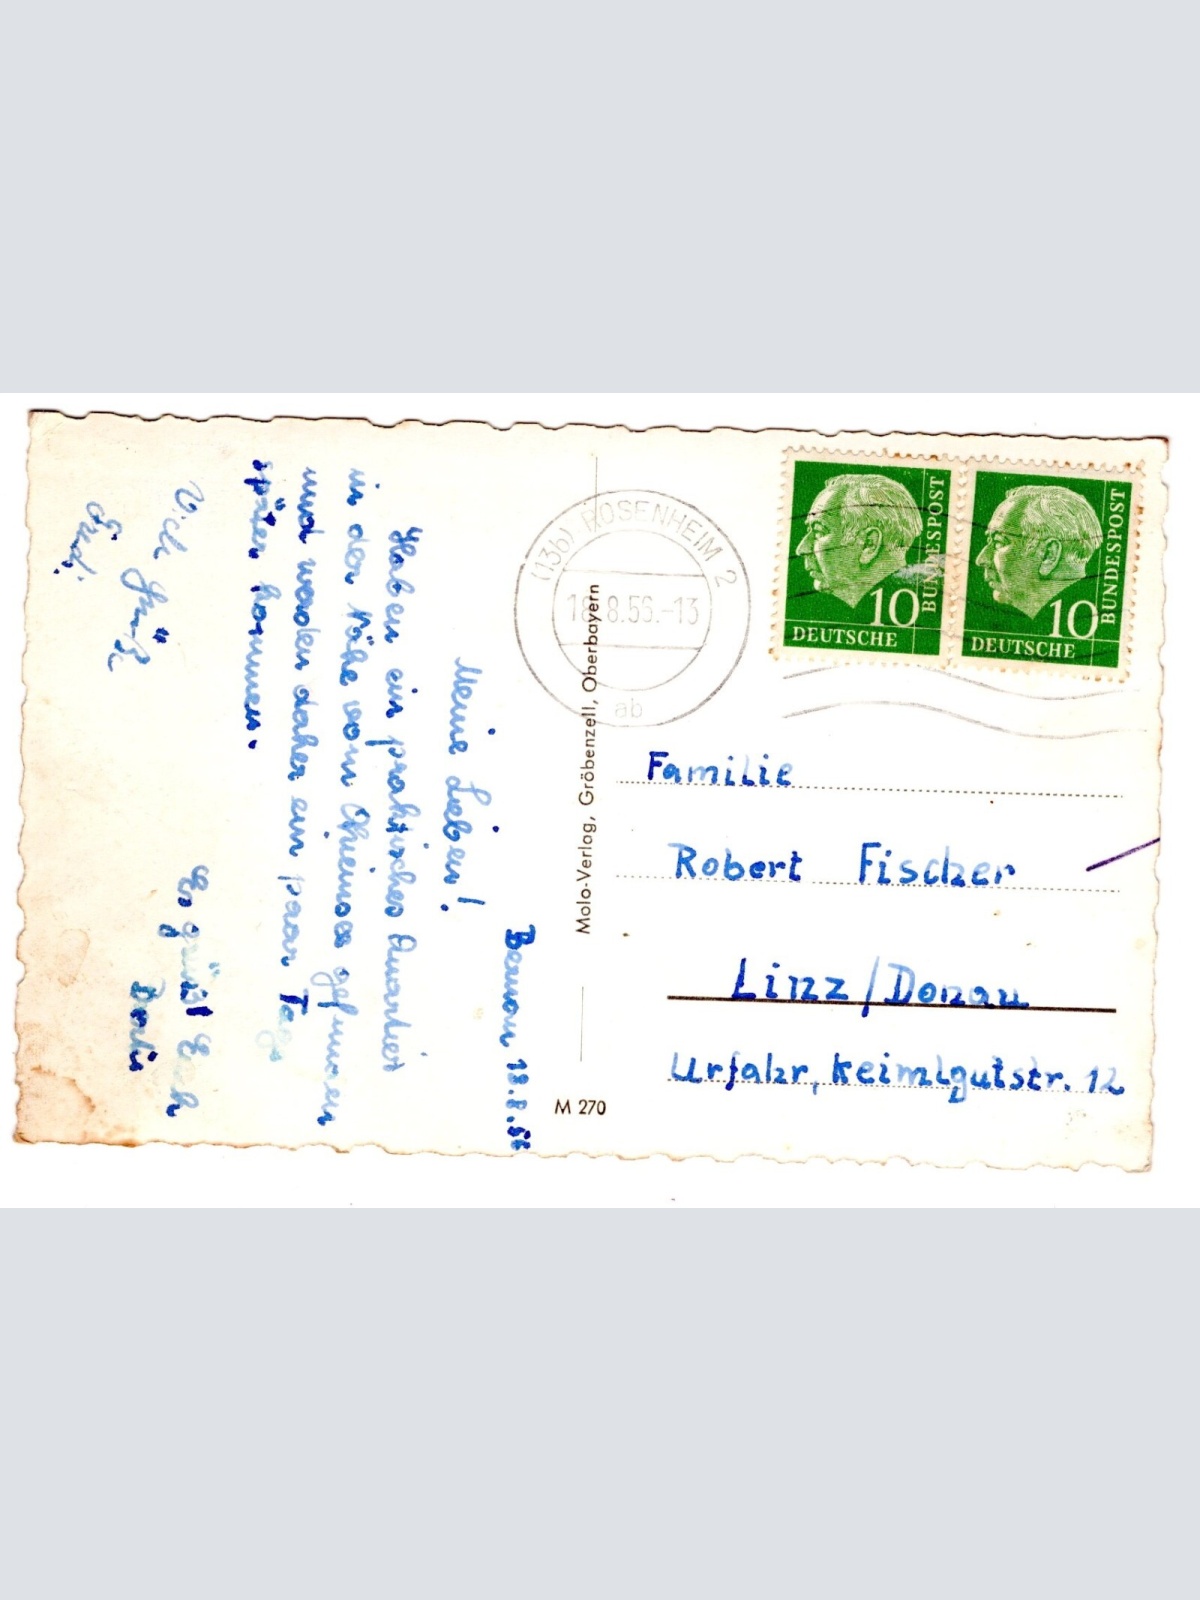 Bernau 18.8.56
Meine Lieben!
Haben ein praktisches Quartier
in der Nähe vom Chiemsee gefunden
und werden daher ein paar Tage
später kommen.
Es grüßt Euch
Viele Grüße
(13b) ROSENHEIM 2
18.8.56.-13
ab
10
DEUTSCHE
BUNDESPOST
10
DEUTSCHE
BUNDESPOST
Molo-Verlag, Gröbenzell, Oberbayern
M 270
Familie
Robert Fischer
Linz/Donau
Urfahr, Keimlgutstr. 12